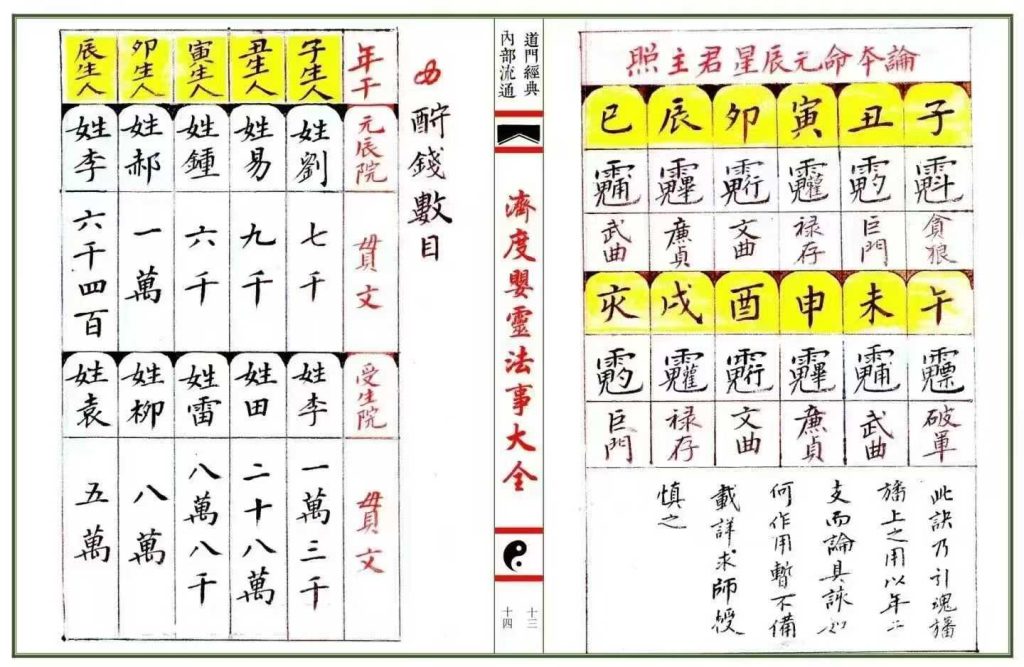 論夲命元辰星君主照
子 丑 寅 卯 辰 巳
貪狼 巨門 禄存 文曲 廉貞 武曲
午 未 申 酉 戌 亥
破軍 武曲 廉貞 文曲 禄存 巨門
此訣乃引魂旛
旛上之用以年
支而論具
何作用暫不備
載詳求師授
慎之
道門經典
內部流通
濟度嬰靈法事大全
十三
十四
酧錢數目
年干 元辰院 貫文 受生院 貫文
子生人 姓劉 七千 姓李 一萬三千
丑生人 姓易 九千 姓田 二十八萬
寅生人 姓鍾 六千 姓雷 八萬八千
卯生人 姓郝 一萬 姓柳 八萬
辰生人 姓李 六千四百 姓袁 五萬